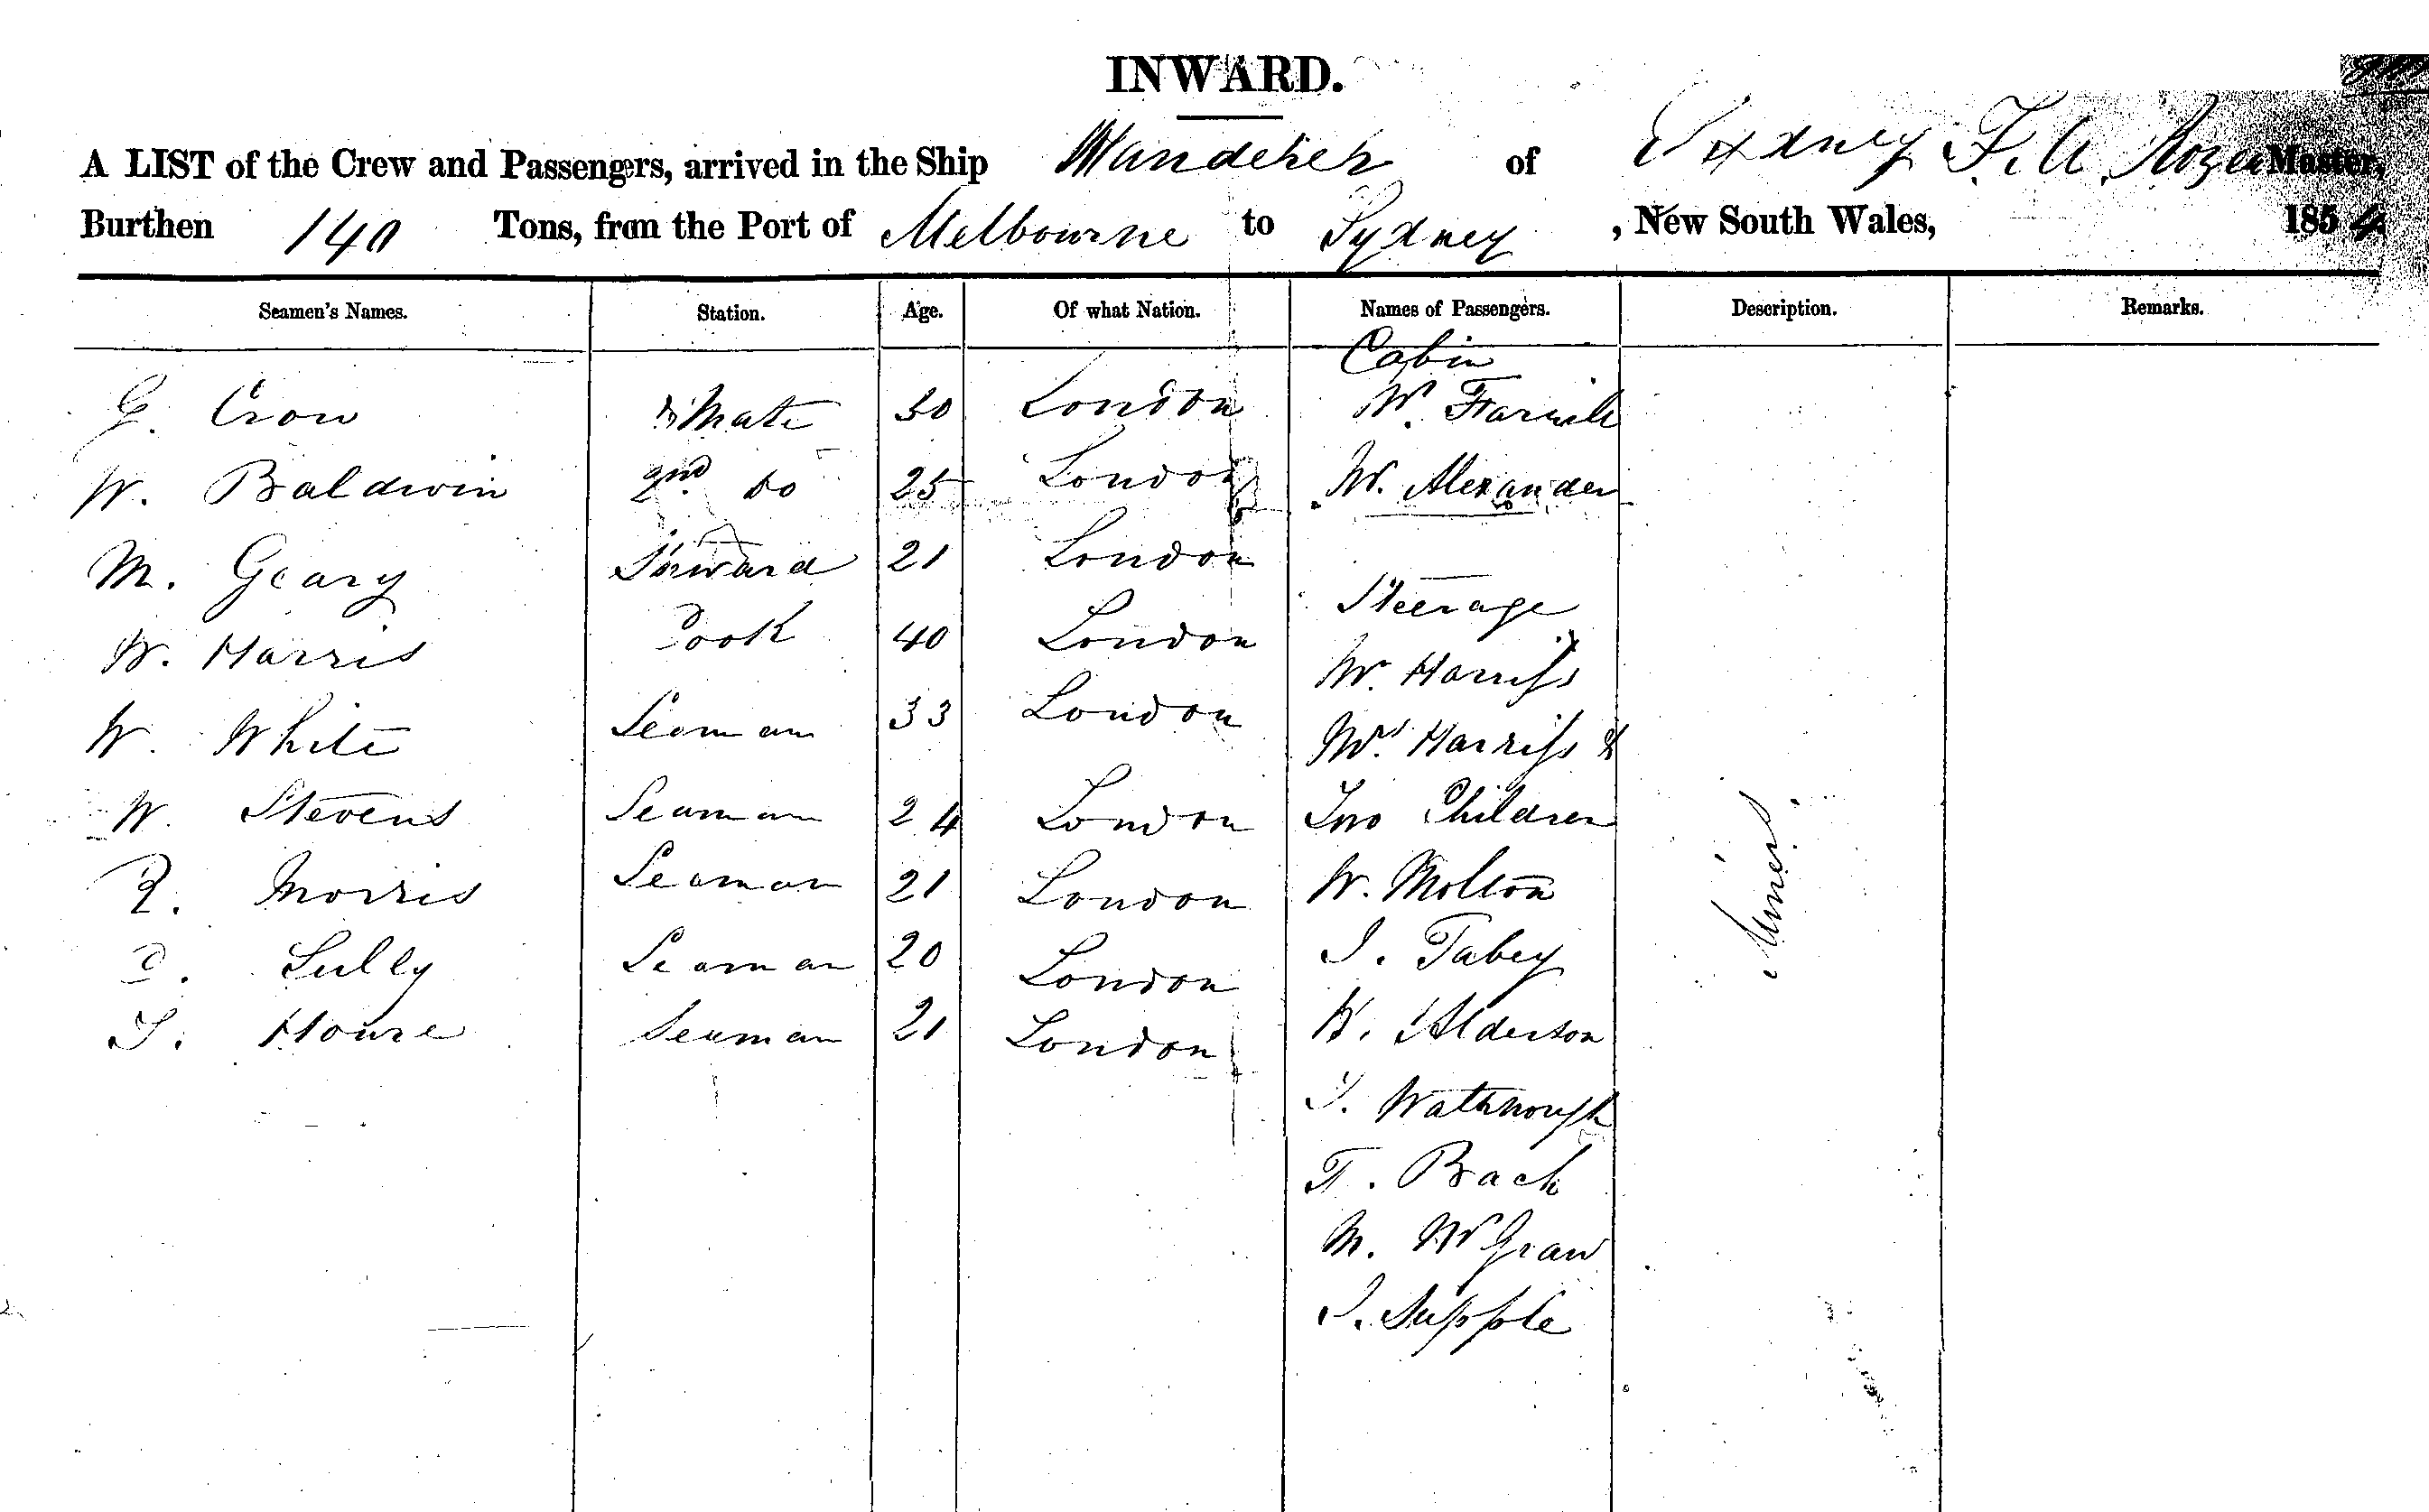 INWARD.
A LIST of the Crew and Passengers, arrived in the Ship Wanderer of Sydney F. A. Master,
Burthen 140 Tons, from the Port of Melbourne to Sydney, New South Wales, 1854
Seamen's Names. Station. Age. Of what Nation. Names of Passengers. Description. Remarks.
Cabin
G. Crow Mate 30 London
W. Baldwin 2nd Do 25 London Mr. Alexander
M. Geary Steward 21 London
Steerage
W. Harris Cook 40 London Mr. Harriss
W. White Seaman 33 London Mrs. Harriss &
W. Stevens Seaman 24 London Two Children
R. Morris Seaman 21 London W. Molton
D. Sully Seaman 20 London J. Tabey
T. House Seaman 21 London W. Alderson
F. Bach
M. McGraw
J. Supple
Miners